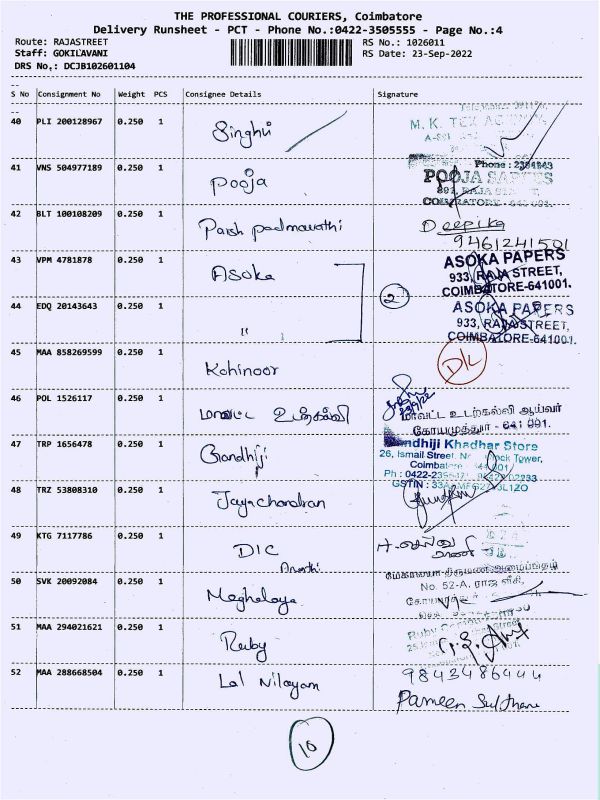 THE PROFESSIONAL COURIERS, Coimbatore
Delivery Runsheet - PCT - Phone No.:0422-3505555 - Page No.:4
Route: RAJASTREET
RS No.: 1026011
Staff: GOKILAVANI
RS Date: 23-Sep-2022
DRS No.: DCJB102601104
S No Consignment No Weight PCS Consignee Details Signature
40 PLI 200128967 0.250 1 Singhvi
M. K. TEX
41 VNS 504977189 0.250 1 Pooja
Phone : 2394943
POOJA SAREES
COIMBATORE - 641 001.
42 BLT 100108209 0.250 1 Parsh padmavathi Deepika
9461241501
43 VPM 4781878 0.250 1 Asoka
ASOKA PAPERS
933, RAJA STREET,
COIMBATORE-641001.
2
44 EDQ 20143643 0.250 1 "
ASOKA PAPERS
933, RAJA STREET,
COIMBATORE-641001.
45 MAA 858269599 0.250 1 Kohinoor D/L
46 POL 1526117 0.250 1 மாவட்ட
23/9/22
மாவட்ட உடற்கல்வி ஆய்வர்
கோயமுத்தூர் - 641 001.
47 TRP 1656478 0.250 1 Gandhiji
Gandhiji Khadhar Store
26, Ismail Street, Clock Tower,
48 TRZ 53808310 0.250 1 Jaynchandran
49 KTG 7117786 0.250 1 DIC
50 SVK 20092084 0.250 1 Meghalaya
No. 52-A, ராஜ வீதி,
51 MAA 294021621 0.250 1 Ruby
Ruby
52 MAA 288668504 0.250 1 Lal Nilayam
9843486444
Parveen Sulthana
10